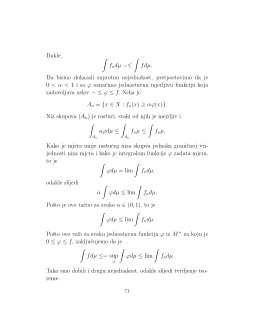 Dakle,
∫ fₙdμ −≤ ∫ fdμ.
Da bismo dokazali suprotnu nejednakost, pretpostavimo da je
0 < α < 1 i sa φ označimo jednostavnu mjerljivu funkciju koja
zadovoljava uslov − ≤ φ ≤ f. Neka je
Aₙ = {x ∈ X : fₙ(x) ≥ αφ(x)}.
Niz skupova (Aₙ) je rastući, svaki od njih je mjerljiv i
∫_{Aₙ} αφdμ ≤ ∫_{Aₙ} fₙμ ≤ ∫ fₙμ.
Kako je mjera unije rastućeg niza skupova jednaka graničnoj vri-
jednosti niza mjera i kako je integralom funkcije φ zadata mjera,
to je
∫ φdμ = lim ∫ fₙdμ,
odakle slijedi
α ∫ φdμ ≤ lim ∫ fₙdμ.
Pošto je ovo tačno za svako α ∈ (0, 1), to je
∫ φdμ ≤ lim ∫ fₙdμ
Pošto ovo važi za svaku jednostavnu funkciju φ iz M⁺ za koju je
0 ≤ φ ≤ f, zaključujemo da je
∫ fdμ ≤= sup_φ ∫ φdμ ≤ lim ∫ fₙdμ.
Tako smo dobili i drugu nejednakost, odakle slijedi tvrdjenje teo-
reme.
71